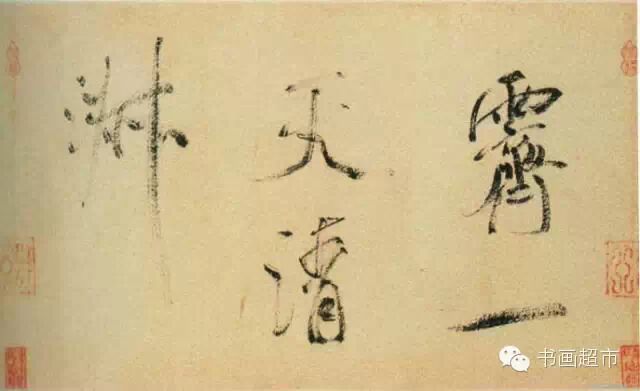 霽一
天清
淑
书画超市